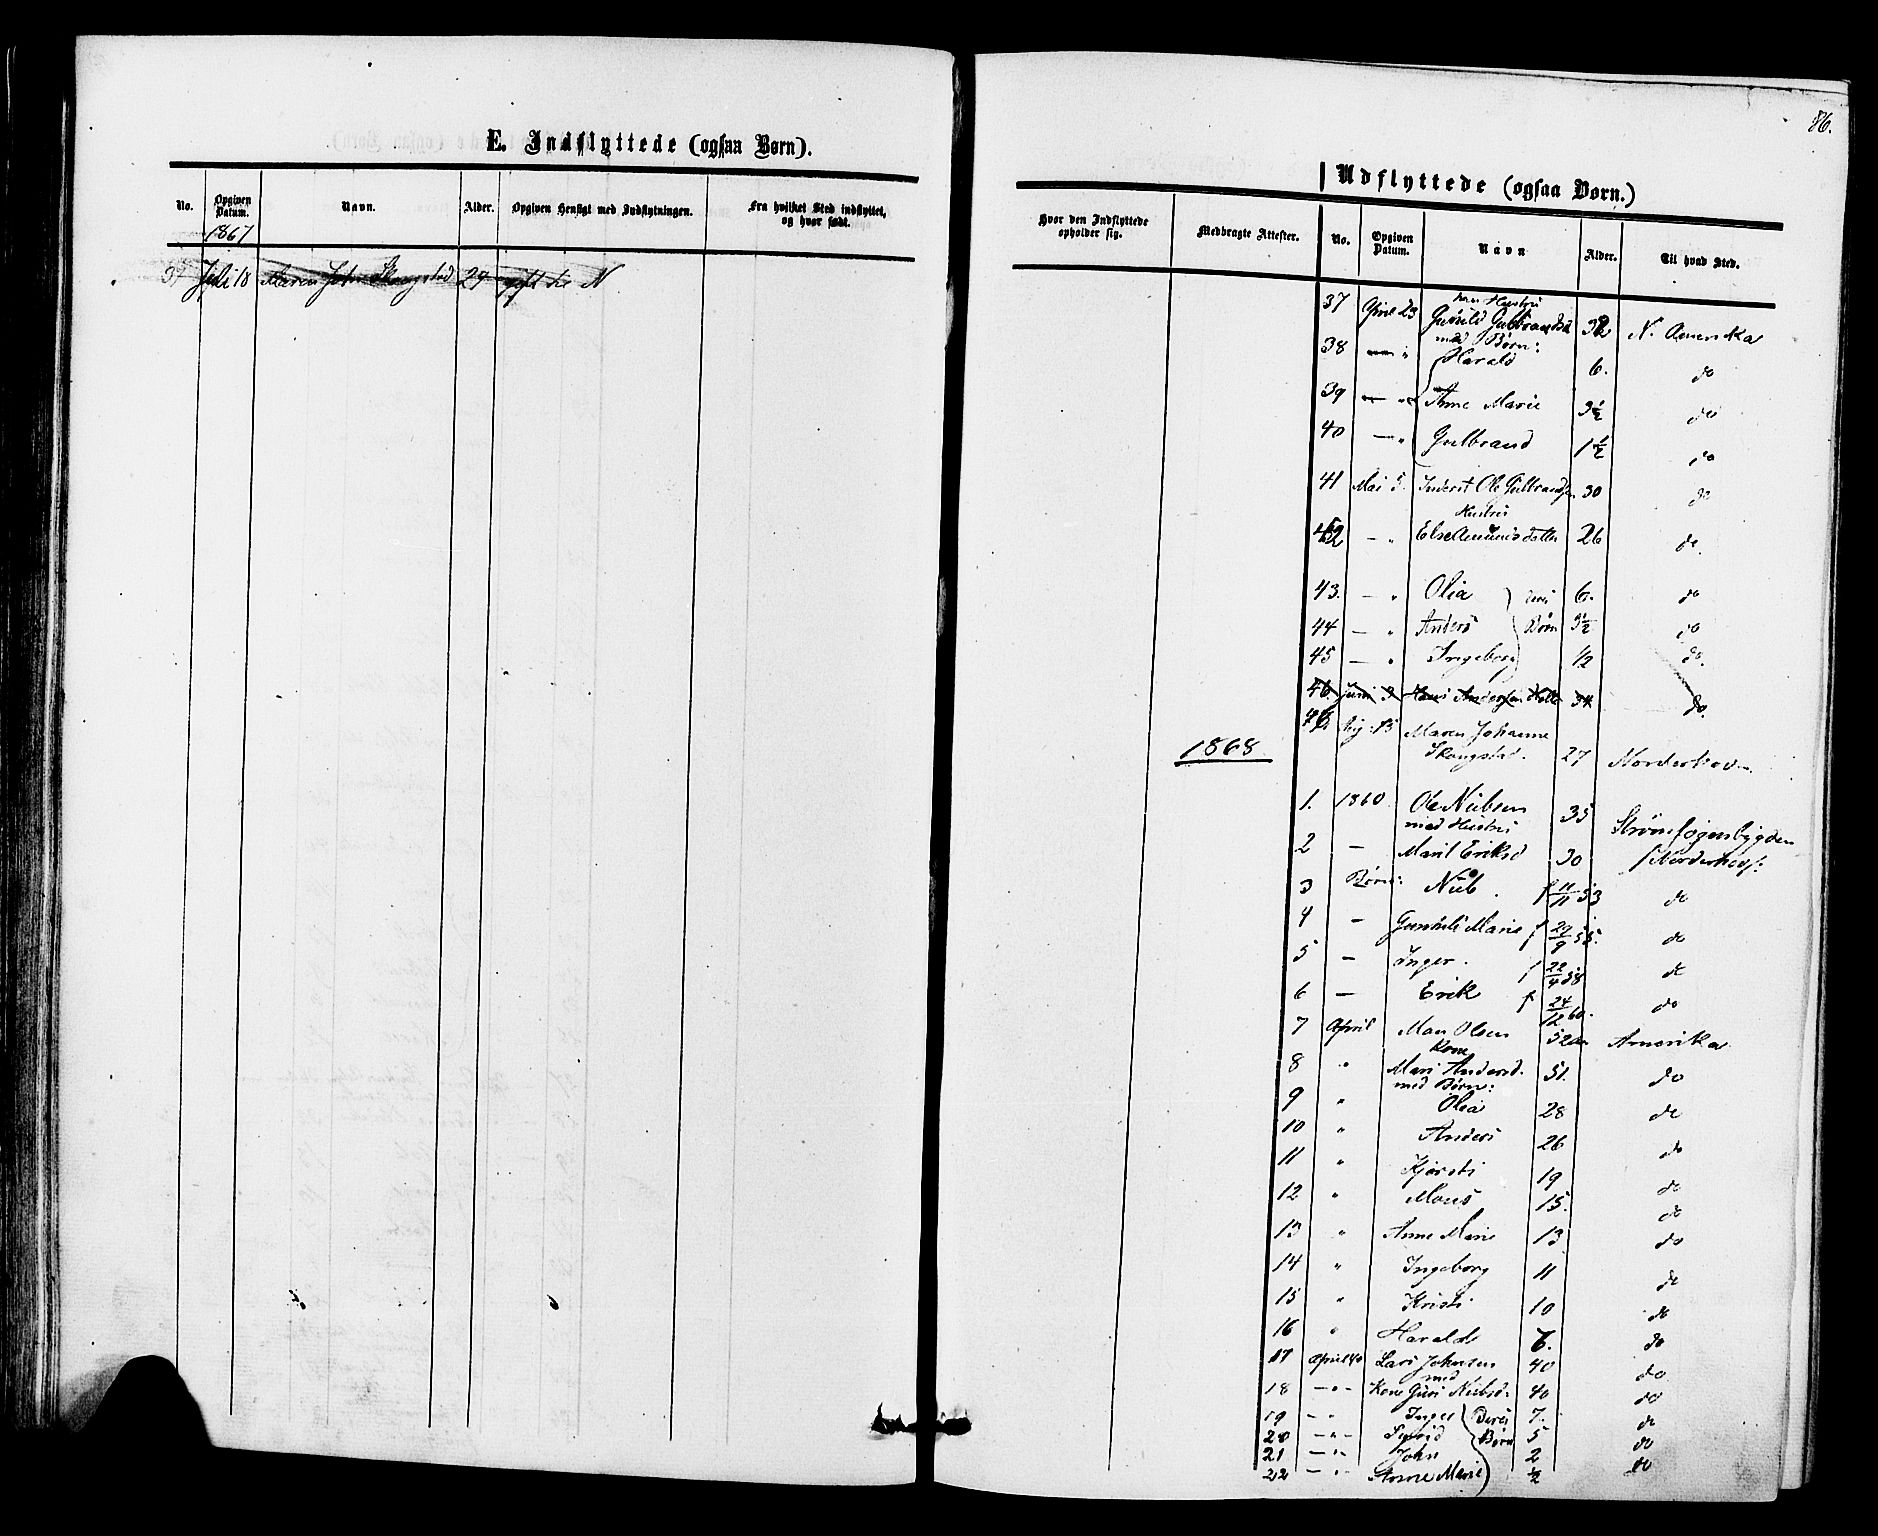 E. Indflyttede (ogsaa Børn).
No. Opgiven Datum. Navn. Alder. Opgiven Hensigt med Indflytningen. Fra hvilket Sted indflyttet, og hvor født.
1867
Juli 18 Maren Joh. Skougstad 27 gift til N
86.
Udflyttede (ogsaa Børn.)
Hvor den Indflyttede opholder sig. Medbragte Attester. No. Opgiven Datum. Navn Alder. Til hvad Sted.
hans Hustru
37 April 23 Gunild Gulbrandsd 32 N. Amerika
med Børn:
38 — " Harald 6. do
39 — " Anne Marie 3½ do
40 — " Gulbrand 1½ do
41 Mai 5. Inderst Ole Gulbrandsen 30 do
Hustru
42 — " Else Amunds datter 26 do.
43. — " Olia 6. do
44 — " Anders Børn 3½ do
45 — " Ingeborg ½ do.
46 Juni 3 Hans Andersen 34 do.
46 13 Maren Johanne
Skougstad. 27 Norderhov
1868
1. 1860 Ole Nielsen 35 Strømsogenbygden
med Hustru
2 — Marit Eriksd 30 Norderhov
3 Børn: Niels f 11/11 53 do
4 — Gunhild Marie f 29/9 55. do
5 — Inger. f 22/4 58 do
6 — Erik f 24/12 60. do
7 April Mon Olsen 52 Amerika
Kone
8 " Mari Andersd. 51. do
med Børn:
9 " Olia 28 do
10 " Anders 26 do
11 " Kjersti 19 do
12 " Mons 15. do
13 " Anne Marie 13 do
14 " Ingeborg 11 do
15 " Kristi 10 do
16 " Harald 6. do
17 April 40 Lars Johnsen 40 do
med
18 — " — Kone Guri Nielsd. 40 do
19 — " Inger Deres 7. do
20 — " — Sigrid Børn 5 do
21 — " — John 2 do
22 — " Anne Marie ½ do